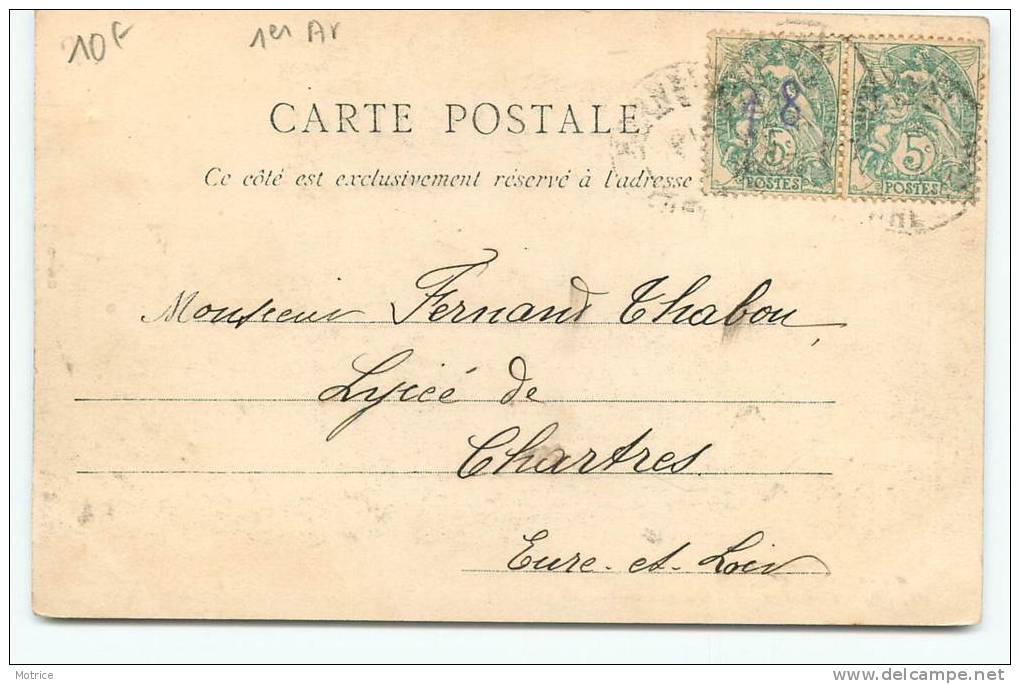 10f
1er Ar
CARTE POSTALE
Ce côté est exclusivement réservé à l'adresse
78
5c 5c
POSTES POSTES
Monsieur Fernand Thabou,
Lyicé de
Chartres
Eure-et-Loir
Motrice
www.delcampe.net